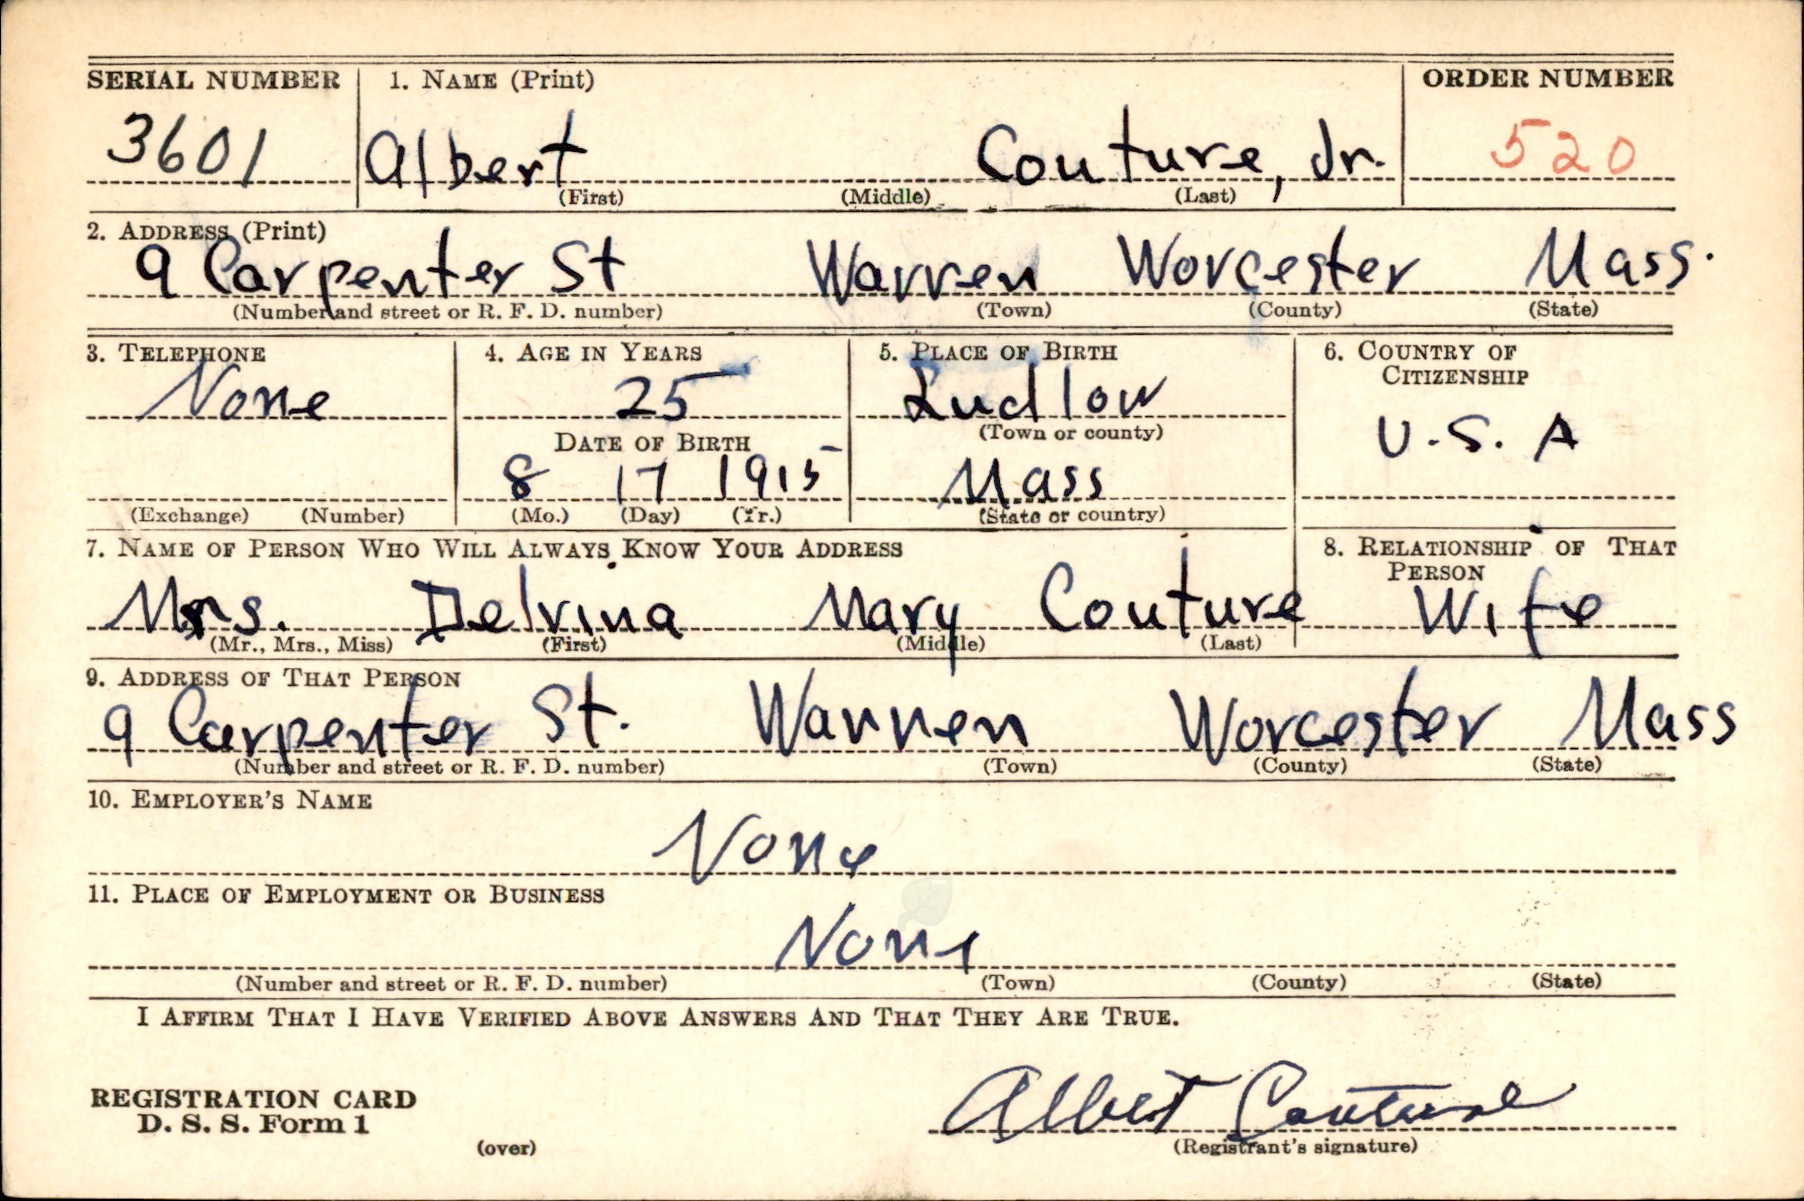 SERIAL NUMBER 1. NAME (Print) ORDER NUMBER
3601 Albert Couture, Jr. 520
(First) (Middle) (Last)
2. ADDRESS (Print)
9 Carpenter St Warren Worcester Mass.
(Number and street or R. F. D. number) (Town) (County) (State)
3. TELEPHONE 4. AGE IN YEARS 5. PLACE OF BIRTH 6. COUNTRY OF CITIZENSHIP
None 25 Ludlow U.S.A
DATE OF BIRTH (Town or county)
8 17 1915 Mass
(Exchange) (Number) (Mo.) (Day) (Yr.) (State or country)
7. NAME OF PERSON WHO WILL ALWAYS KNOW YOUR ADDRESS 8. RELATIONSHIP OF THAT PERSON
Mrs. Delvina Mary Couture Wife
(Mr., Mrs., Miss) (First) (Middle) (Last)
9. ADDRESS OF THAT PERSON
9 Carpenter St. Warren Worcester Mass
(Number and street or R. F. D. number) (Town) (County) (State)
10. EMPLOYER'S NAME
None
11. PLACE OF EMPLOYMENT OR BUSINESS
None
(Number and street or R. F. D. number) (Town) (County) (State)
I AFFIRM THAT I HAVE VERIFIED ABOVE ANSWERS AND THAT THEY ARE TRUE.
REGISTRATION CARD
D. S. S. Form 1
Albert Couture
(over) (Registrant's signature)